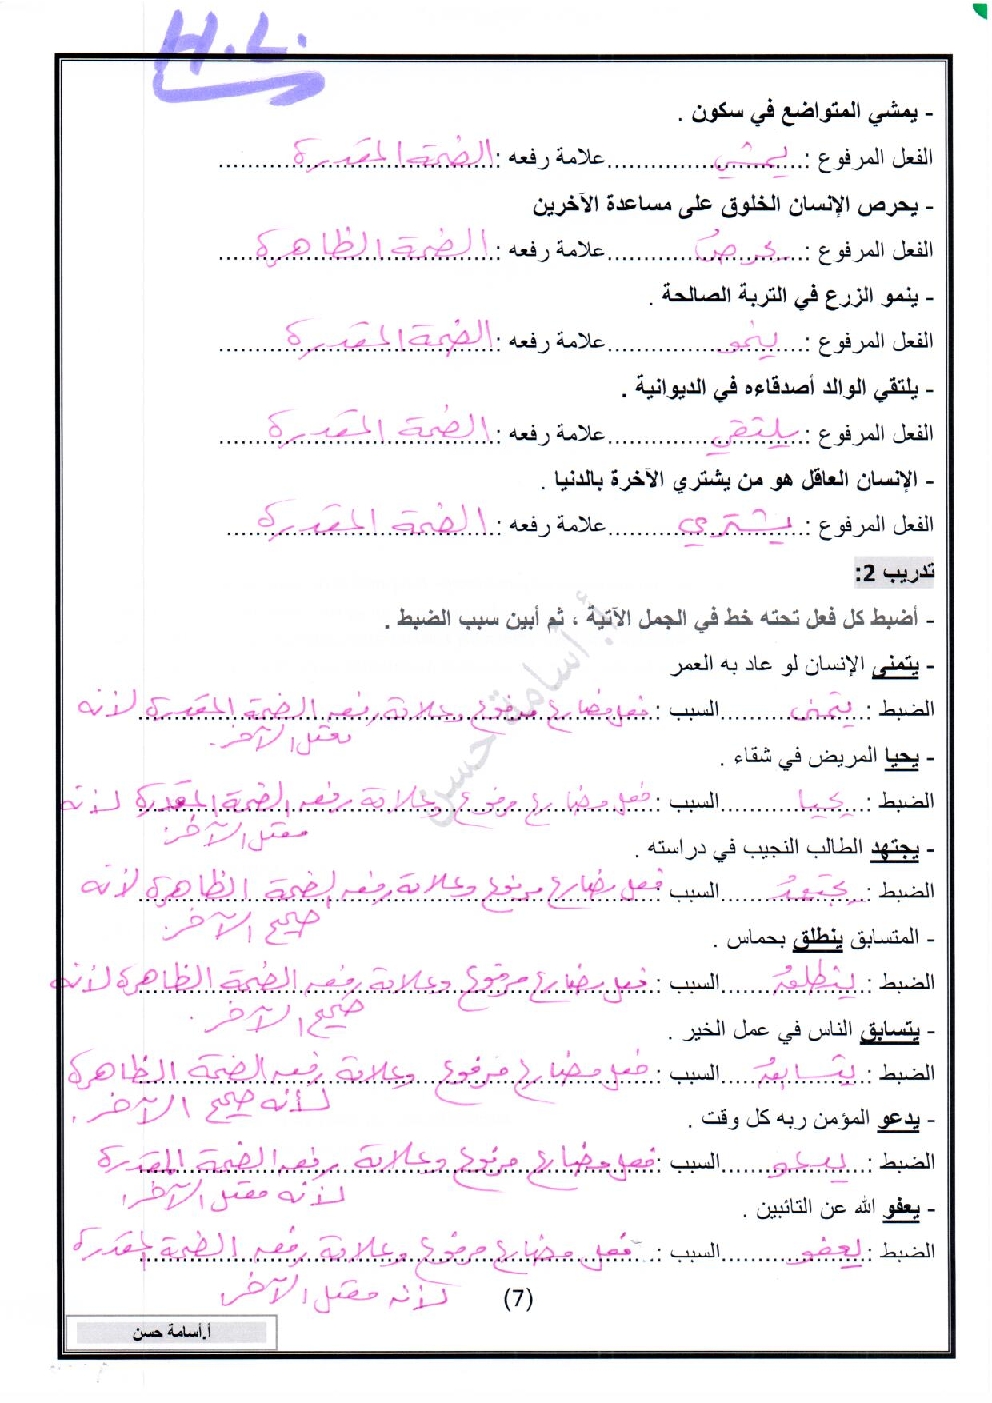 H.L.
- يمشي المتواضع في سكون .
الفعل المرفوع : يمشي علامة رفعه : الضمة المقدرة
- يحرص الإنسان الخلوق على مساعدة الآخرين
الفعل المرفوع : يحرصُ علامة رفعه : الضمة الظاهرة
- ينمو الزرع في التربة الصالحة .
الفعل المرفوع : ينمو علامة رفعه : الضمة المقدرة
- يلتقي الوالد أصدقاءه في الديوانية .
الفعل المرفوع : يلتقي علامة رفعه : الضمة المقدرة
- الإنسان العاقل هو من يشتري الآخرة بالدنيا .
الفعل المرفوع : يشتري علامة رفعه : الضمة المقدرة
تدريب 2:
- أضبط كل فعل تحته خط في الجمل الآتية ، ثم أبين سبب الضبط .
- يتمنى الإنسان لو عاد به العمر
الضبط : يتمنى السبب : فعل مضارع مرفوع وعلامة رفعه الضمة المقدرة لأنه
معتل الآخر.
- يحيا المريض في شقاء .
الضبط : يحيا السبب : فعل مضارع مرفوع وعلامة رفعه الضمة المقدرة لأنه
معتل الآخر.
- يجتهد الطالب النجيب في دراسته .
الضبط : يجتهدُ السبب : فعل مضارع مرفوع وعلامة رفعه الضمة الظاهرة لأنه
صحيح الآخر.
- المتسابق ينطلق بحماس .
الضبط : ينطلقُ السبب : فعل مضارع مرفوع وعلامة رفعه الضمة الظاهرة لأنه
صحيح الآخر.
- يتسابق الناس في عمل الخير .
الضبط : يتسابقُ السبب : فعل مضارع مرفوع وعلامة رفعه الضمة الظاهرة
لأنه صحيح الآخر.
- يدعو المؤمن ربه كل وقت .
الضبط : يدعو السبب : فعل مضارع مرفوع وعلامة رفعه الضمة المقدرة
لأنه معتل الآخر.
- يعفو الله عن التائبين .
الضبط : يعفو السبب : فعل مضارع مرفوع وعلامة رفعه الضمة المقدرة
لأنه معتل الآخر.
(7)
أ.أسامة حسن
أ. أسامة حسن